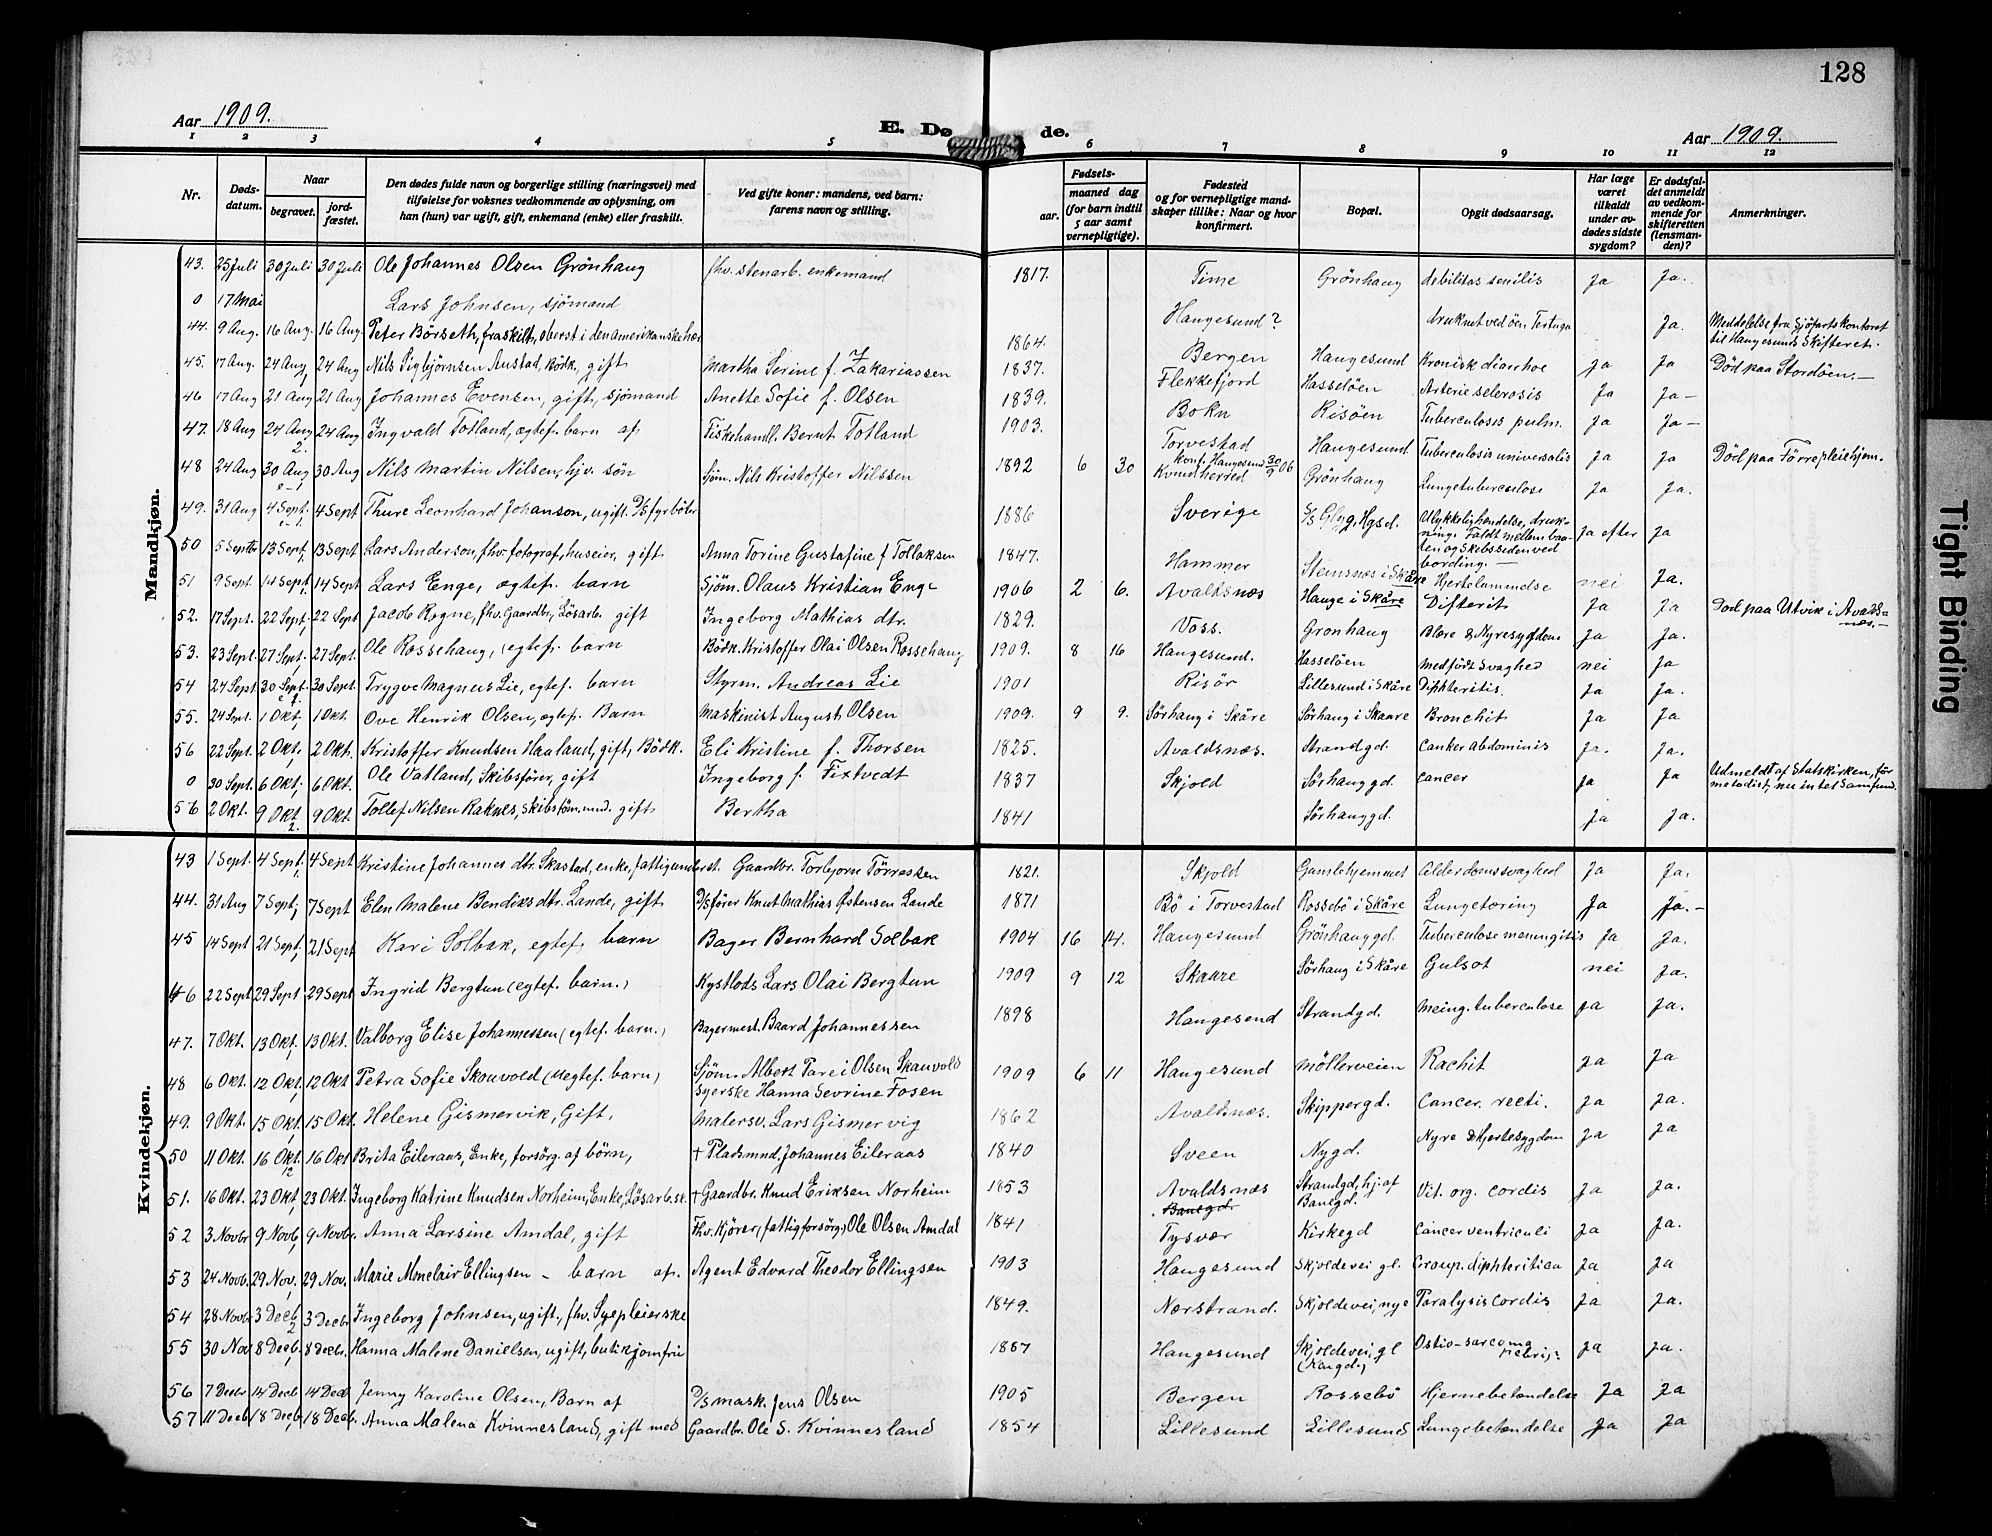 128
Aar 1909.
E. Dø de.
Aar 1909.
1 2 3 4 5 6 7 8 9 10 11 12
Nr.
Døds-datum.
Naar
begravet.
jord-fæstet.
Den dødes fulde navn og borgerlige stilling (næringsvei) med
tilføielse for voksnes vedkommende av oplysning, om
han (hun) var ugift, gift, enkemand (enke) eller fraskilt.
Ved gifte koner: mandens, ved barn:
farens navn og stilling.
Fødsels-
aar.
maaned dag
(for barn indtil
5 aar samt
vernepligtige).
Fødested
og for vernepligtige mand-
skaper tillike: Naar og hvor
konfirmert.
Bopæl.
Opgit dødsaarsag.
Har læge
været
tilkaldt
under av-
dødes sidste
sygdom?
Er dødsfal-
det anmeldt
av vedkom-
mende for
skifteretten
(lensman-
den)?
Anmerkninger.
Mandkjøn.
43. 25 Juli 30 Juli 30 Juli Ole Johannes Olsen Grönhaug fhv. stenarb. enkemand 1817. Time Grönhaug debilitas senilis Ja Ja.
0 17 Mai Lars Johnsen, sjömand Haugesund? druknet ved öen Tertuga Ja. Meddelelse fra Sjöfartskontoret
til Haugesunds Skifteret.
44. 9 Aug. 16 Aug. 16 Aug. Peter Börseth, fraskilt, oberst i den amerikanske hær 1864. Bergen Haugesund Kronisk diarrhoe ja Ja Död paa Stordöen.—
45. 17 Aug. 24 Aug 24 Aug Nils Sigbjörnsen Austad, Bödk., gift Martha Serine f. Zakariassen 1837. Flekkefjord Hasselöen Arterie sclerosis Ja Ja—
46 17 Aug 21 Aug 21 Aug Johannes Evensen, gift, sjömand Anette Sofie f. Olsen 1839. Bokn Risöen Tuberculosis pulm. Ja Ja—
47. 18 Aug 24 Aug 24 Aug Ingvald Totland, egtef. barn af Fiskehandl. Bernt Totland 1903. Torvestad Haugesund Tuberculosis universalis Ja Ja Död paa Förrepleiehjem.
48 24 Aug 30 Aug 30 Aug Nils Martin Nilsen, hjv. sön Sjöm. Nils Kristoffer Nilssen 1892 6 30 konf. Haugesund 30/9 06
Kvindherred Grönhaug Lungetuberculose Ja Ja.
49. 31 Aug 4 Sept. 4 Sept Thure Leonhard Johanson, ugift. D/S fyrböter 1886 Sverige S/S Glyg, Hgsd. Ulykkelighendelse, druk-
ning: Faldt mellem baa-
ten og Skibssiden ved
bording.— Ja efter Ja
50 5 Septbr 13 Sept. 13 Sept Lars Anderson, fhv. fotograf, huseier, gift Anna Torine Gustafine f Tollaksen 1847. Hammer Steinsnes i Skåre Hjertelammelse nei Ja.
51 9 Sept. 14 Sept. 14 Sept Lars Enge, egtef. barn Sjöm. Olaus Kristian Enge 1906 2 6. Avaldsnæs Hauge i Skåre Difterit Ja Ja Död paa Utvik i Avalds-
næs.—
52. 17 Sept. 22 Sept. 22 Sept Jacob Rogne, fhv. Gaardbr., Lösarb. gift Ingeborg Mathias dtr. 1829. Voss. Gronhaug Blære & Nyresygdom Ja Ja.
53. 23 Sept. 27 Sept. 27 Sept. Ole Rossehaug, egtef. barn Bödk. Kristoffer Olai Olsen Rossehaug 1909. 8 16 Haugesund. Hasselöen Medfödt Svaghed nei Ja
54 24 Sept 30 Sept 30 Sept. Trygve Magnus Lie, egtef. barn Styrm. Andreas Lie 1901 Risör Lillesund i Skåre Diphteritis. Ja Ja.
55. 24 Sept. 1 Okt 1 Okt. Ove Henrik Olsen, egtef. Barn Maskinist August Olsen 1909. 9 9. Sörhaug i Skåre Sörhaug i Skaare Bronchit Ja Ja
56 22 Sept. 2 Okt. 2 Okt. Kristoffer Knudsen Haaland, gift, Bödk. Eli Kristine f. Thorsen 1825. Avaldsnæs. Strandgd. Canker abdominis Ja. Ja.
0 30 Sept. 6 Okt. 6 Okt. Ole Vatland, Skibsförer, gift Ingeborg f. Fixtvedt 1837 Skjold Sörhauggd. Cancer Ja Ja Udmeldt af Statskirken, för
metodist, nu intet Samfund.
56 2 Okt. 9 Okt. 9 Okt. Tollef Nilsen Raknes, Skibstöm.md. gift Bertha 1841 Sörhauggd. Ja Ja.
Kvindekjøn.
43 1 Sept. 4 Sept. 4 Sept Kristine Johannes dtr. Skastad, enke, fattigunderst. Gaardbr. Torbjorn Törressen 1821. Skjold Gamlehjemmet Alderdomssvaghed Ja Ja.
44. 31 Aug 7 Sept. 7 Sept Elen Malene Bendiks dtr. Lande, gift D/S förer Knut Mathias Östensen Lande 1871 Bö i Torvestad Rossebö i Skåre Lungetæring Ja Ja.—
45 14 Sept 21 Sept. 21 Sept Kari Solbak, egtef. barn Bager Bernhard Solbak 1904 16 14. Haugesund Grönhauggd. Tuberculose meningitis Ja Ja.
46 22 Sept 29 Sept 29 Sept Ingrid Bergtun (egtef. barn.) Kystlods Lars Olai Bergtun 1909 9 12 Skaare Sörhaug i Skåre Gulsot nei Ja.
47. 7 Okt. 13 Okt. 13 Okt. Valborg Elise Johannessen (egtef. barn.) Bagermest. Baard Johannessen 1898 Haugesend Strandgd. Meing. tuberculose Ja Ja.
48 6 Okt. 12 Okt. 12 Okt Petra Sofie Skouvold (uegtef. barn) Sjöm. Albert Tarei Olsen Skauvold
Syerske Hanna Sevrine Fosen 1909 6 11 Haugesund Möllerveien Rachit Ja Ja
49. 9 Okt. 15 Okt. 15 Okt. Helene Gismervik, Gift, Malersv. Lars Gismervig 1862 Avaldsnæs. Skippergd. Cancer. recti. Ja Ja.
50 11 Okt. 16 Okt. 16 Okt Brita Eileraas, Enke, forsörg. af börn, + Pladsmnd. Johannes Eileraas 1840 Sveen Nygd. Nyre & Hjertesygdom Ja Ja
51. 16 Okt. 23 Okt. 23 Okt. Ingeborg Katrine Knudsen Norheim, Enke, Lösarb.sk. + Gaardbr. Knud Eriksen Norheim 1853 Avaldsnæs Strandgd, hj. af
Banegd. Vit. org. cordis Ja Ja.
52 3 Novbr 9 Novb. 9 Novbr. Anna Larsine Amdal, gift Fhv. Kjörer, (fattigforsörg.) Ole Olsen Amdal 1841 Tysvær Kirkegd Cancer ventriculi Ja Ja.
53 24 Novb. 29 Nov. 29 Nov. Marie Monclair Ellingsen – barn af. Agent Edvard Theodor Ellingsen 1903 Haugesund Skjoldevei gl. Croup. diphteritica Ja Ja
54 28 Novbr 3 Decb 3 Decbr Ingeborg Johnsen, ugift., fhv. Sygepleierske 1849. Nærstrand. Skjoldevei, nye Paralysis cordis Ja Ja.
55 30 Nov 8 Decb. 8 Decbr. Hanna Malene Danielsen, ugift, butikjomfru 1887 Haugesund Skjoldevei, gl Ostio-sarcoma Ja Ja.
56 7 Decbr 14 Decb 14 Decb Jenny Karoline Olsen, Barn af D/S mask. Jens Olsen 1905 Bergen Rossebö Hjernebetændelse Ja Ja
57 11 Decb 18 Decb. 18 Decb. Anna Malena Kvinnesland, gift med Gaardbr. Ole S. Kvinnesland 1854 Lillesund Lillesund Lungebetændelse Ja Ja
Tight Binding